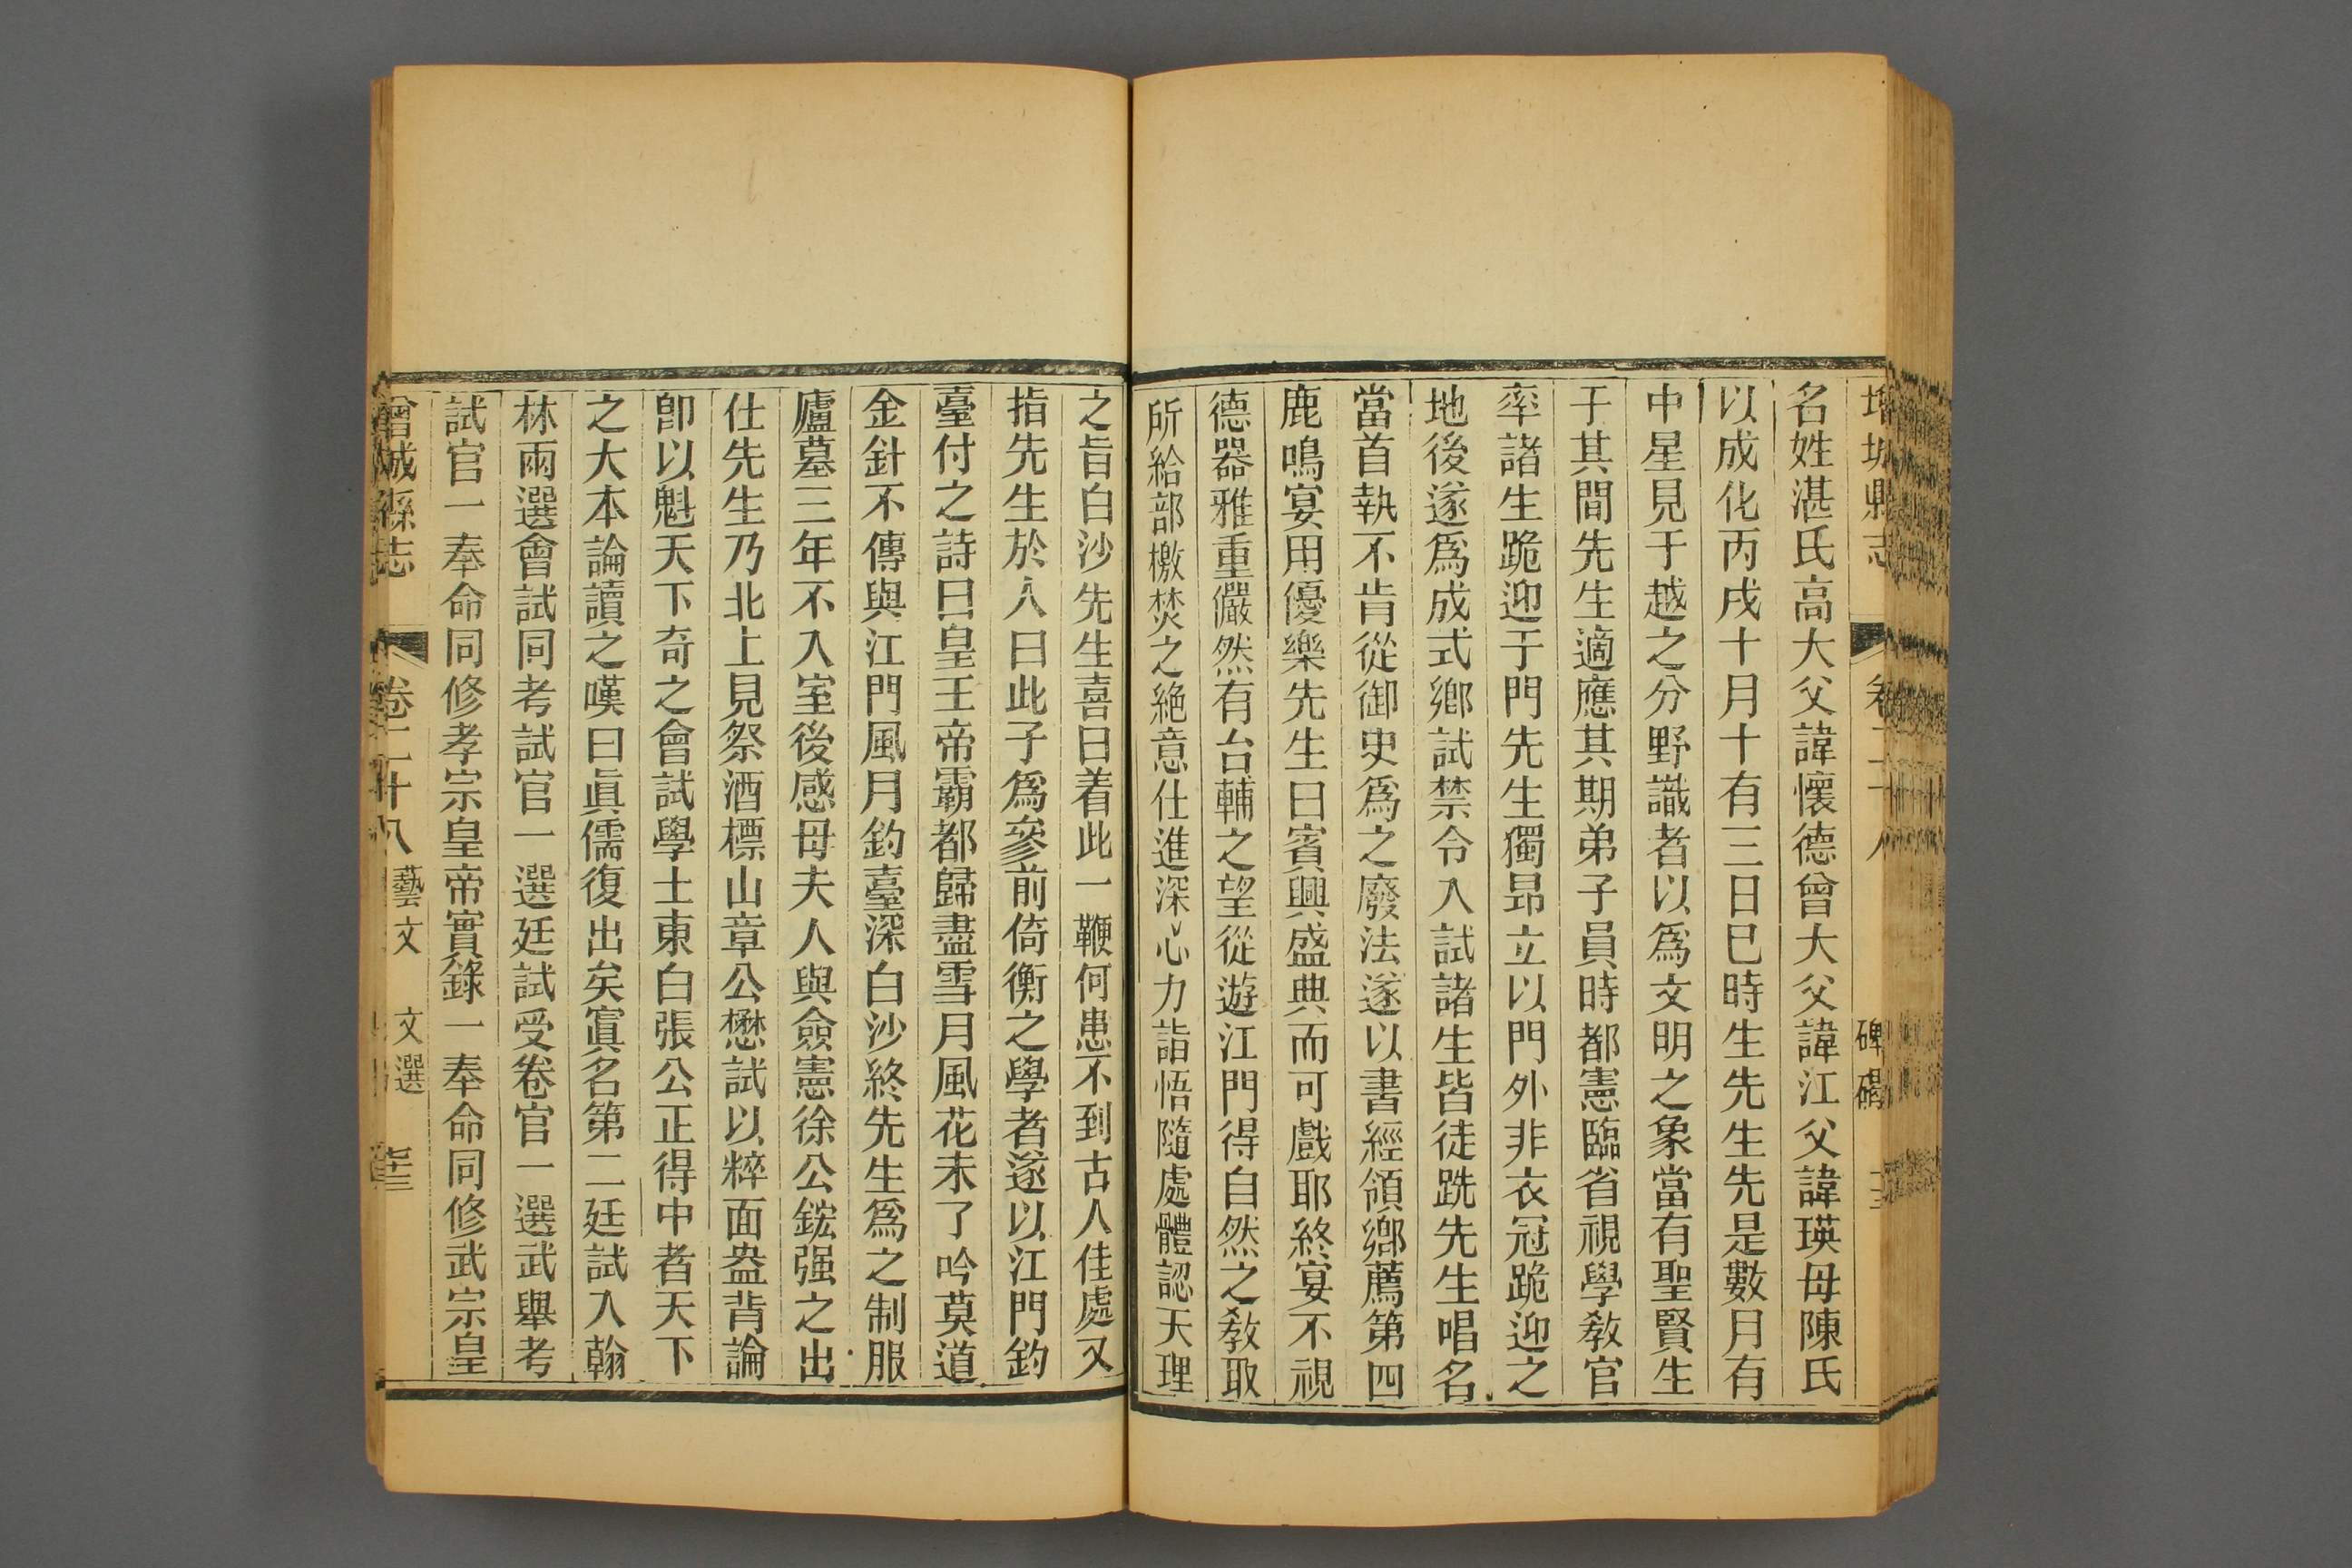 增城縣志 卷二十八 碑碣
名姓湛氏高大父諱懷德曾大父諱江父諱瑛母陳氏
以成化丙戌十月十有三日巳時生先生先是數月有
中星見于越之分野識者以爲文明之象當有聖賢生
于其間先生適應其期弟子員時都憲臨省視學敎官
率諸生跪迎于門先生獨昻立以門外非衣冠跪迎之
地後遂爲成式鄉試禁令入試諸生皆徒跣先生唱名
當首執不肯從御史爲之廢法遂以書經領鄉薦第四
鹿鳴宴用優樂先生曰賓興盛典而可戲耶終宴不視
德器雅重儼然有台輔之望從遊江門得自然之敎取
所給部檄焚之絶意仕進深心力詣悟隨處體認天理
之旨白沙先生喜曰着此一鞭何患不到古人佳處又
指先生於人曰此子爲參前倚衡之學者遂以江門釣
臺付之詩曰皇王帝霸都歸盡雪月風花未了吟莫道
金針不傳與江門風月釣臺深白沙終先生爲之制服
廬墓三年不入室後感母夫人與僉憲徐公鋐强之出
仕先生乃北上見祭酒標山章公懋試以粹面盎背論
卽以魁天下奇之會試學士東白張公正得中者天下
之大本論讀之嘆曰眞儒復出矣寘名第二廷試入翰
林兩選會試同考試官一選廷試受卷官一選武舉考
試官一奉命同修孝宗皇帝實錄一奉命同修武宗皇
曾城縣志 卷二十八 藝文 文選